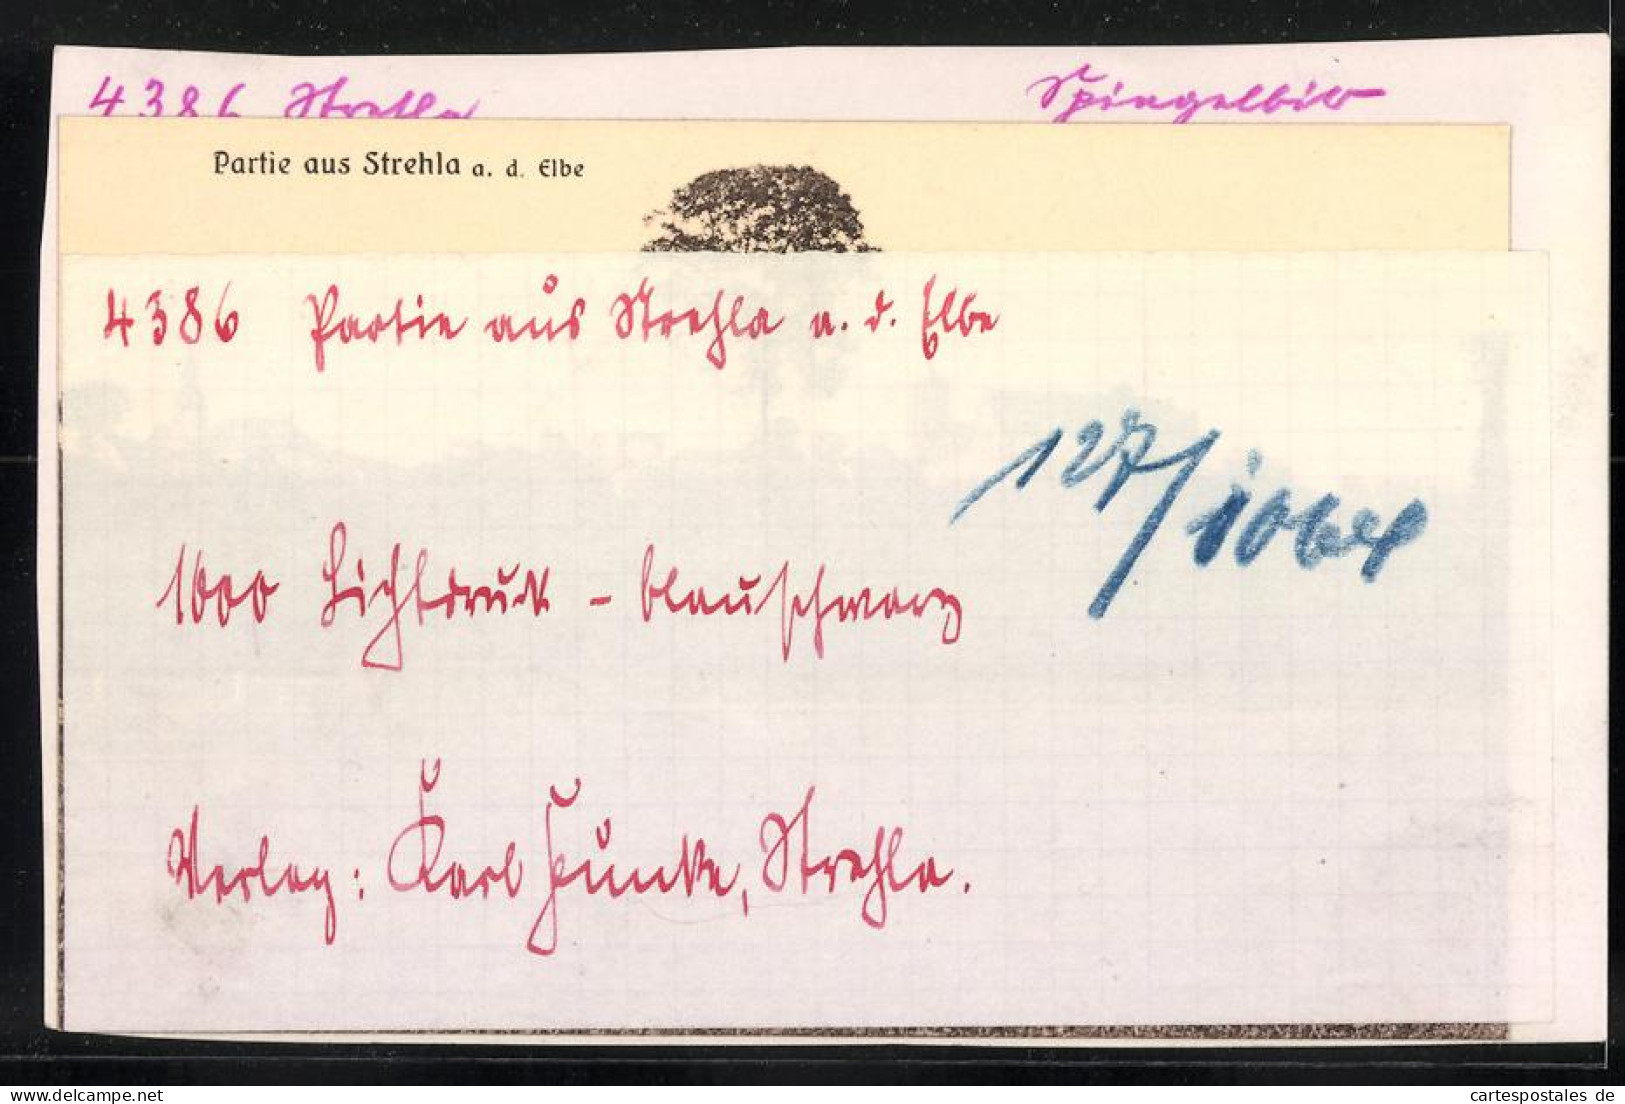 4386 Strehla Spiegelbild
Partie aus Strehla a. d. Elbe
4386 Partie aus Strehla a. d. Elbe
127/1064
1000 Lichtdruck - blauschwarz
Verlag: Karl Funke, Strehla.
cartespostales de